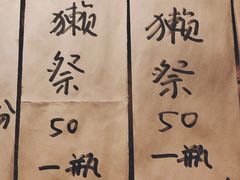 獺祭
50
一瓶
獺祭
50
一瓶